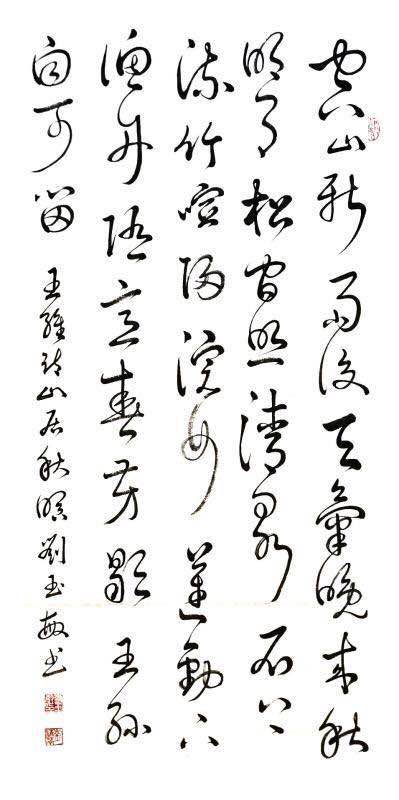 空山新雨後天氣晚來秋
明月松間照清泉石上
流竹喧歸浣女蓮動下
漁舟隨意春芳歇王孫
自可留 王維詩山居秋暝 劉玉敏书